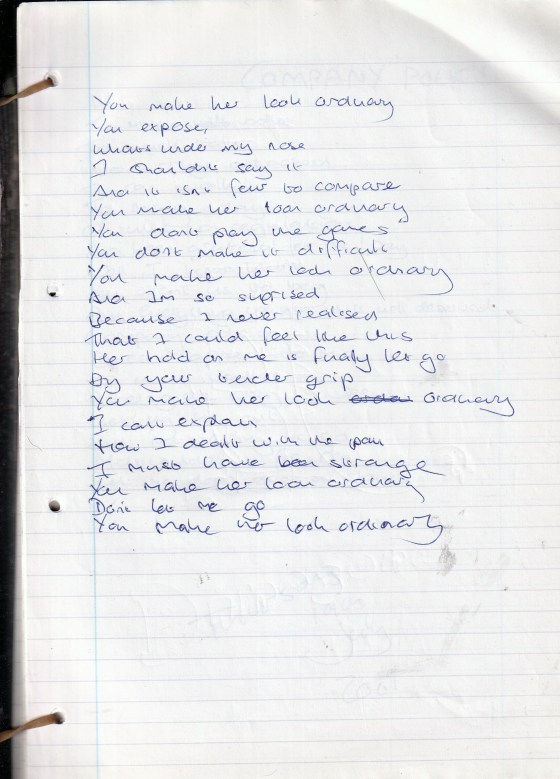 You make her look ordinary
You expose,
Whats under my nose
I shouldnt say it
And it isnt fair to compare
You make her look ordinary
You dont play the games"
You dont make it difficult
You make her look ordinary
And Im so suprised
Because I never realised
That I could feel like this
Her hold on me is finally let go
By your tender grip
You make her look ordinary
I cant explain
How I dealt with the pain
I must have been strange
You make her look ordinary
Dont let me go
You make her look ordinary